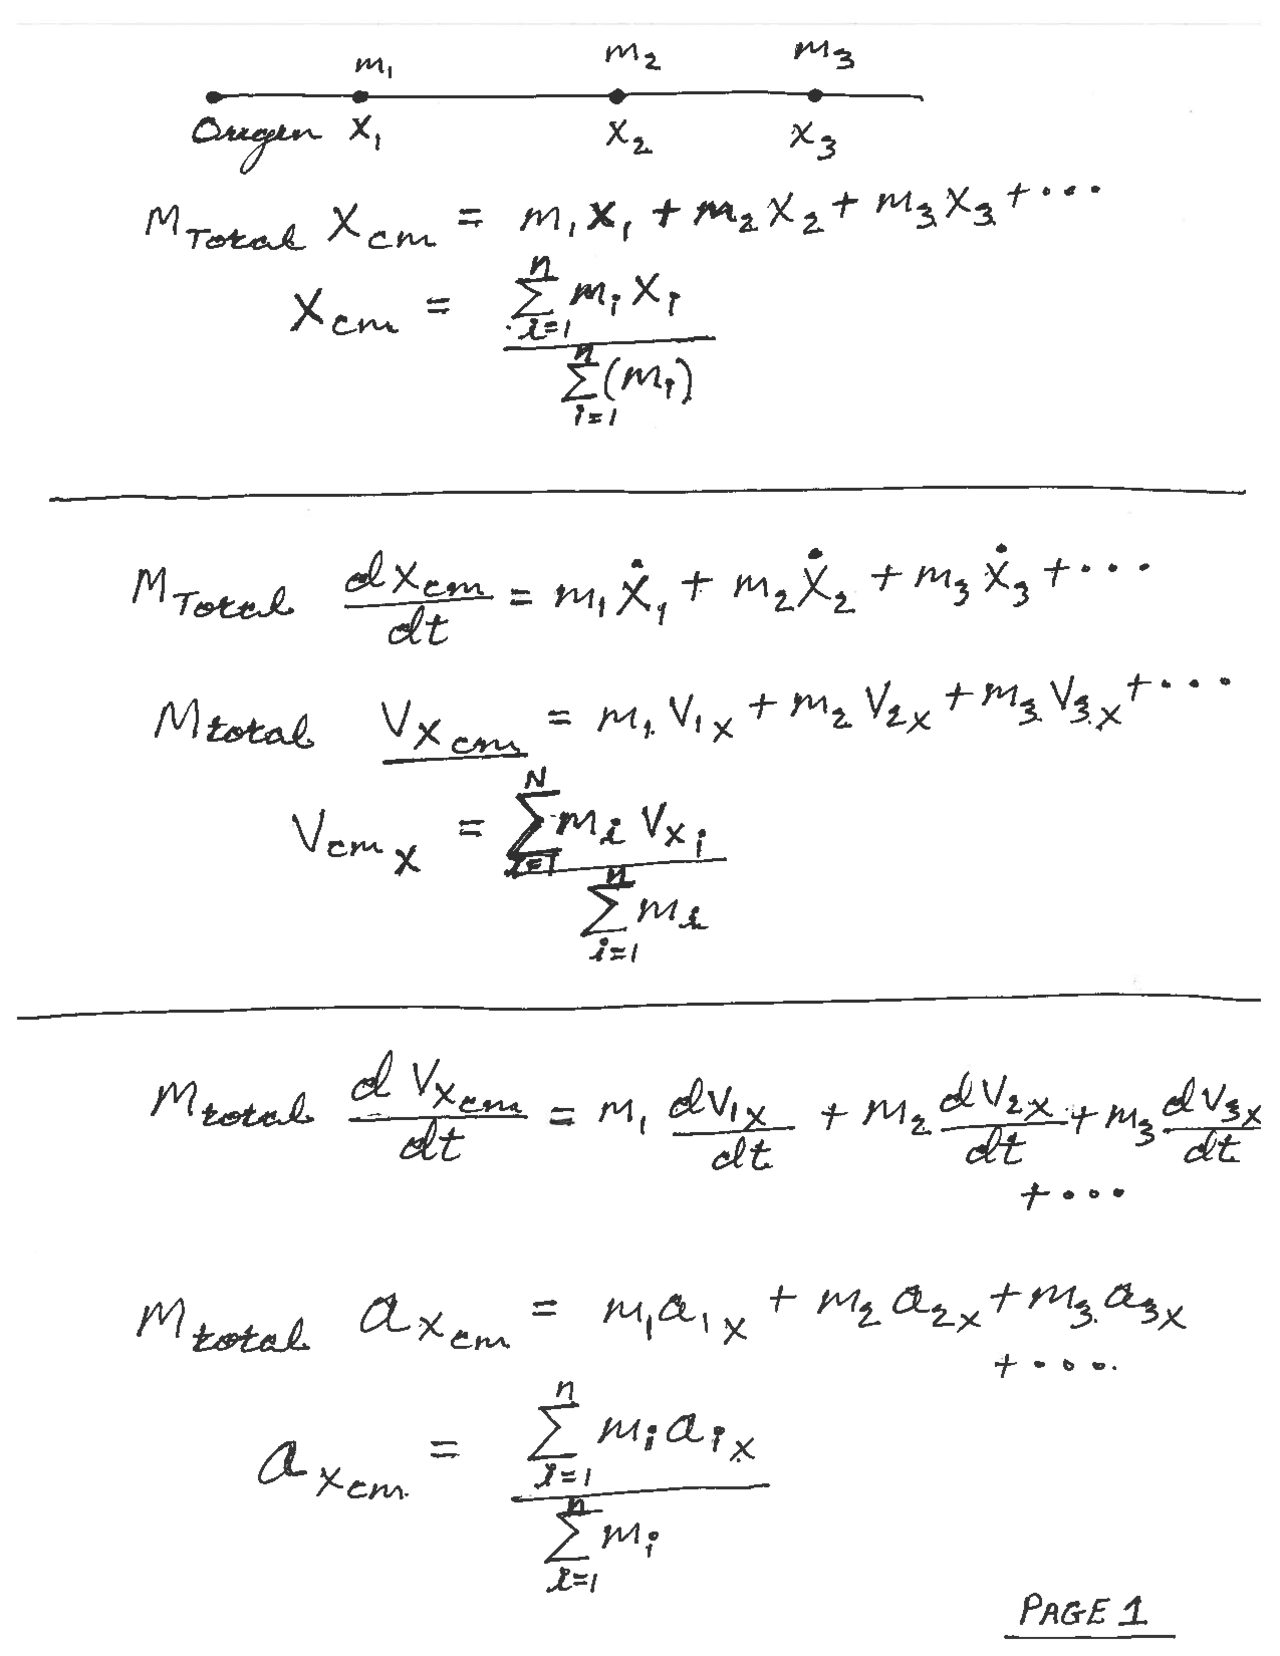 m₁ m₂ m₃
Origin x₁ x₂ x₃
M_Total X_cm = m₁x₁ + m₂x₂ + m₃x₃ + ···
X_cm = \frac{\sum_{i=1}^{n} m_i x_i}{\sum_{i=1}^{n} (m_i)}
M_Total \frac{dx_{cm}}{dt} = m₁ẋ₁ + m₂ẋ₂ + m₃ẋ₃ + ···
M_total V_{x cm} = m₁V₁ₓ + m₂V₂ₓ + m₃V₃ₓ + ···
V_{cm x} = \frac{\sum_{i=1}^{N} m_i V_{x i}}{\sum_{i=1}^{n} m_i}
M_total \frac{dV_{x cm}}{dt} = m₁ \frac{dV_{1x}}{dt} + m₂ \frac{dV_{2x}}{dt} + m₃ \frac{dV_{3x}}{dt}
+ ···
M_total a_{x cm} = m₁a₁ₓ + m₂a₂ₓ + m₃a₃ₓ
+ ····
a_{x cm} = \frac{\sum_{i=1}^{n} m_i a_{ix}}{\sum_{i=1}^{n} m_i}
PAGE 1